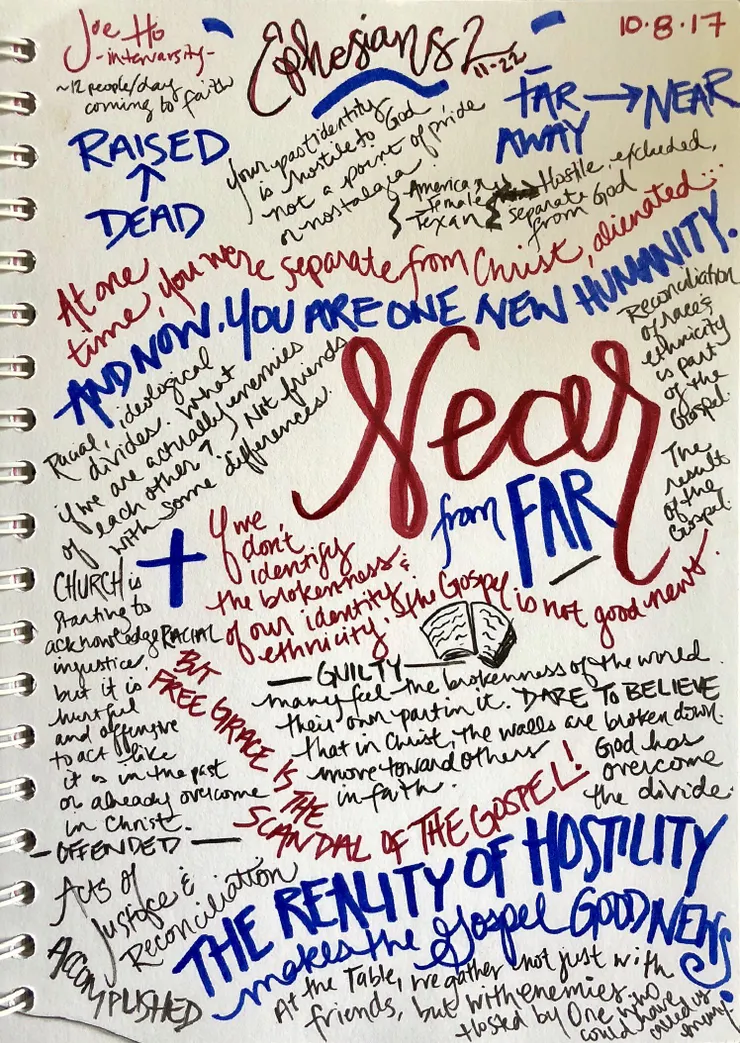 Joe Ho
-intervarsity-
~12 people/day
coming to faith
Ephesians 2
11-22
10.8.17
RAISED
↑
DEAD
Your past identity
is hostile to God
not a point of pride
or nostalgia
American
Female
Texan
Hostile, excluded,
separate
from God
FAR
AWAY → NEAR
At one
time, you were separate from Christ, alienated...
AND NOW. YOU ARE ONE NEW HUMANITY.
Racial, ideological
divides. What
if we are actually enemies
of each other? Not friends
with some differences.
Near
from FAR
Reconciliation
of races &
ethnicity
is part
of the
Gospel.
The
result
of the
Gospel.
If we
don't
identify
the brokenness &
of our identity &
ethnicity, the Gospel is not good news.
CHURCH is
starting to
acknowledge RACIAL
injustice.
but it is
hurtful
and offensive
to act like
it is in the past
or already overcome
in Christ.
—OFFENDED—
BUT
FREE GRACE IS THE
SCANDAL OF THE GOSPEL!
—GUILTY—
many feel the brokenness of the world
their own part in it. DARE TO BELIEVE
that in Christ, the walls are broken down.
move toward others
in faith.
God has
overcome
the divide.
Acts of
Justice &
Reconciliation
ACCOMPLISHED
THE REALITY OF HOSTILITY
makes the Gospel GOOD NEWS
At the Table, we gather not just with
friends, but with enemies.
Hosted by One who
could have
called us
enemy.